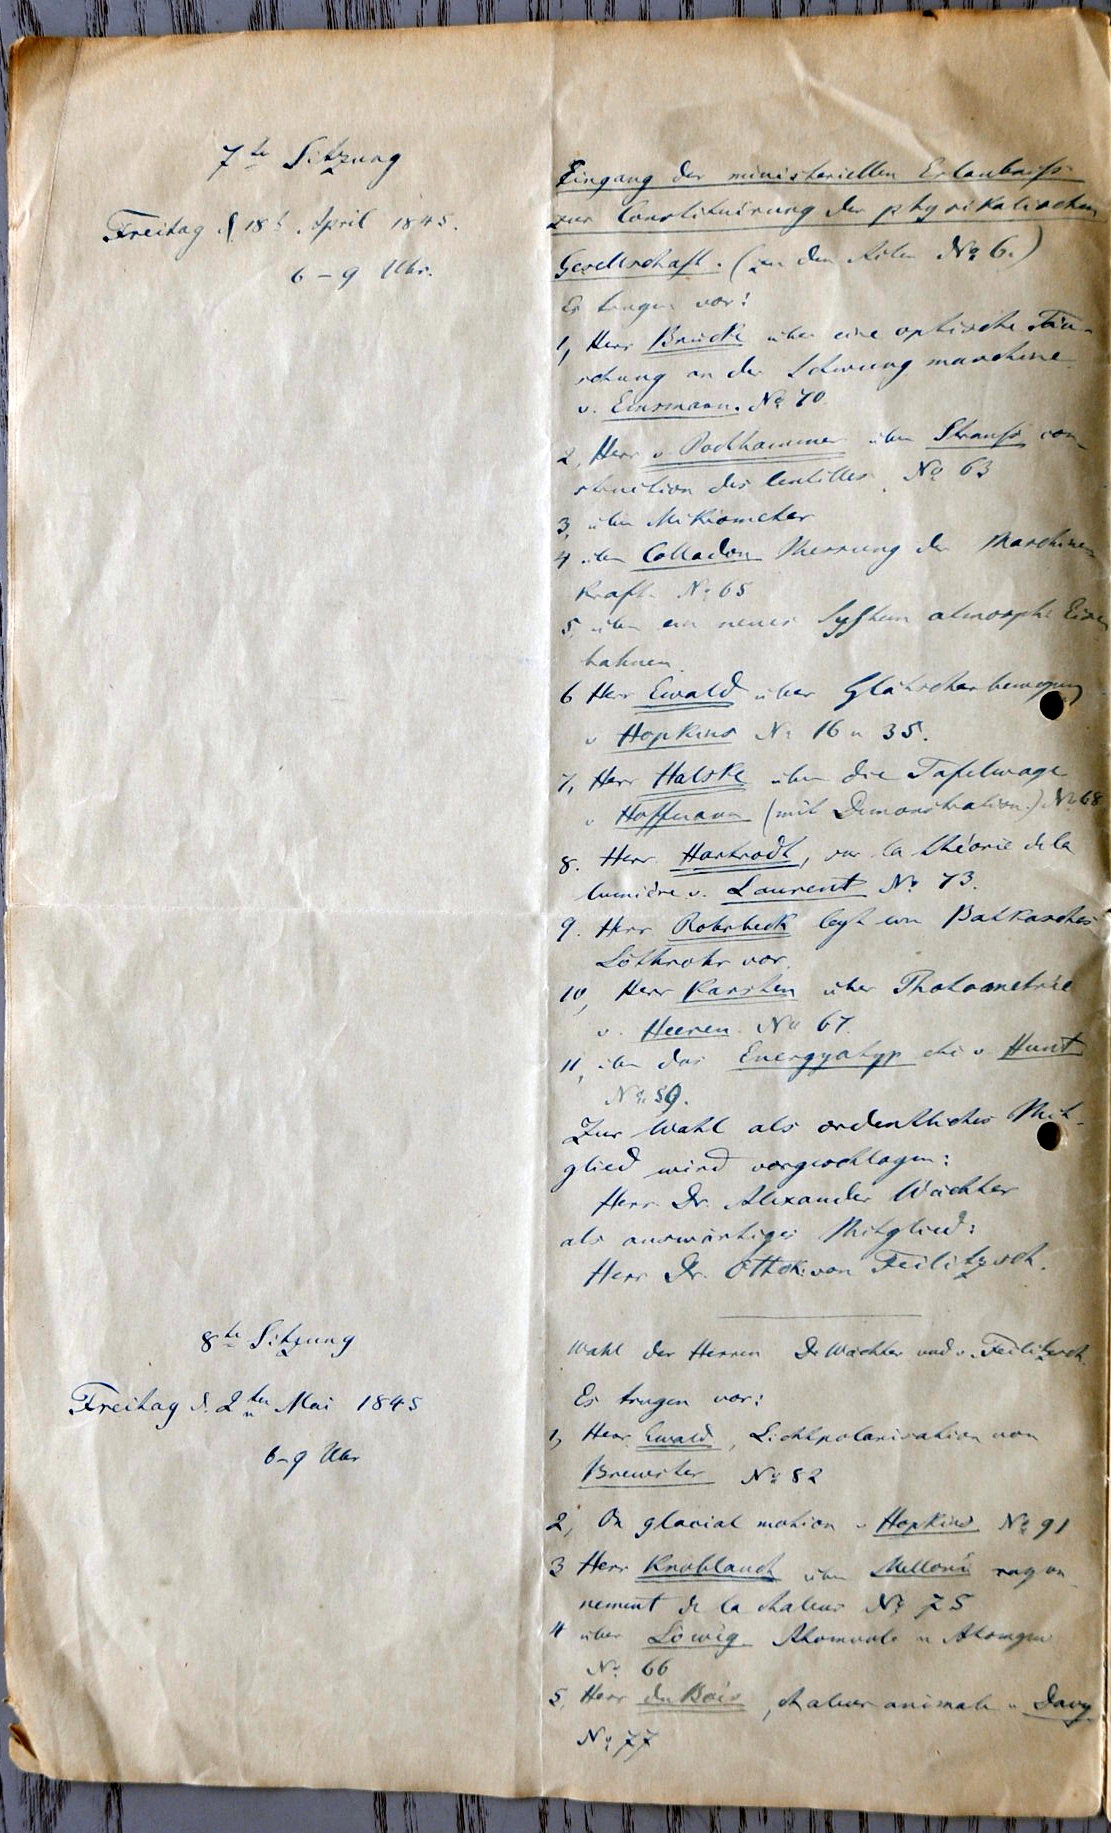 7te Sitzung
Freitag d. 18t April 1845.
6-9 Uhr.
Eingang der ministeriellen Erlaubniß
zur Constituirung der physikalischen
Gesellschaft. (zu den Akten No 6.)
Es tragen vor:
1, Herr Brücke über eine optische Täu-
schung an der Schwungmaschine
v. Einsmann. No 70
2, Herr v Pochhammer über Strauß con-
struction des lentilles. No 63
3, über Mikrometer
4 über Colladon Messung der Maschinen
kraft No 65
5, über ein neues System atmosph. Eisen
bahnen.
6 Herr Ewald über Gletscherbewegung
v Hopkins No 16 u 35.
7, Herr Halske über die Tafelwage
v Hoffmann (mit Demonstration.) No 68
8. Herr Hartrodt, sur la théorie de la
lumière v. Laurent No 73.
9. Herr Rohrbeck legt ein
Löthrohr vor.
10, Herr Karsten über Photometrie
v. Heeren. No 67.
11, über das Energyatyp v Hunt
No 59.
Zur Wahl als ordentliches Mit-
glied wird vorgeschlagen:
Herr Dr. Alexander Wächter
als auswärtiges Mitglied:
Herr Dr. Otto von Feilitzsch.
8te Sitzung
Freitag d. 2ten Mai 1845
6-9 Uhr
Wahl der Herren Dr Wächter und v. Feilitzsch.
Es tragen vor:
1, Herr Ewald, Lichtpolarisation von
Brewster No 82
2, On glacial motion v Hopkins No 91
3 Herr Knoblauch über Melloni rayon-
nement de la chaleur No 75
4 über Löwig Atomvole u Atomgew
No 66
5, Herr du Bois, chaleur animale v Davy
No 77